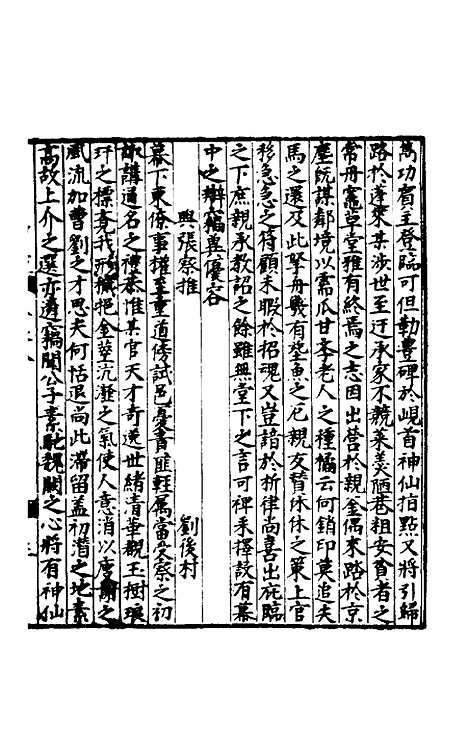 為功賓主登臨可但勒豊碑於峴首神仙指點又將引歸
路於蓬萊某涉世至迂承家不競萊羙陋巷粗安貧者之
常丹臺草堂雅有終焉之志因出營於親金偶來路於京
塵旣謀鄰境以需瓜甘老人之種橘云何銷印莫追夫
馬之還及此拏舟幾有坐魚之厄親友替休休之策上官
移急急之符顧未暇於招魂又豈諳於析律尚喜出庇臨
之下庶親承教詔之餘雖無堂下之言可禆采擇設有幕
中之辯竊冀優容
與張察推 劉後村
幕下東僚事權至重道傍試邑憂責匪輕属當受察之初
敢講通名之禮恭惟某官天才奇逸世緒清華親玉樹琅
玕之標竟我形穢挹金莖沆瀣之氣使人意消以庾謝之
風流加曹劉之才思夫何恬退尚此滯留盖初潜之地素
高故上介之選亦遴竊聞公子素馳魏闕之心將有神仙